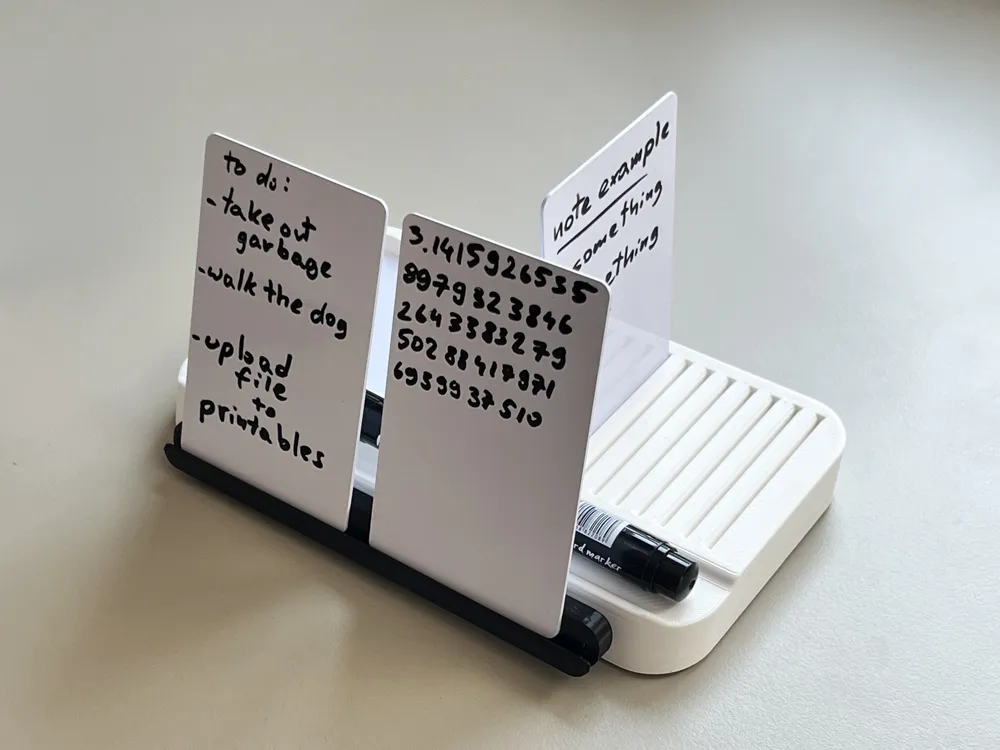 to do:
-take out
garbage
-walk the dog
-upload
file
to
printables
3.1415926535
8979323846
2643383279
50288417971
6939937510
note example
something
ething
rd marker